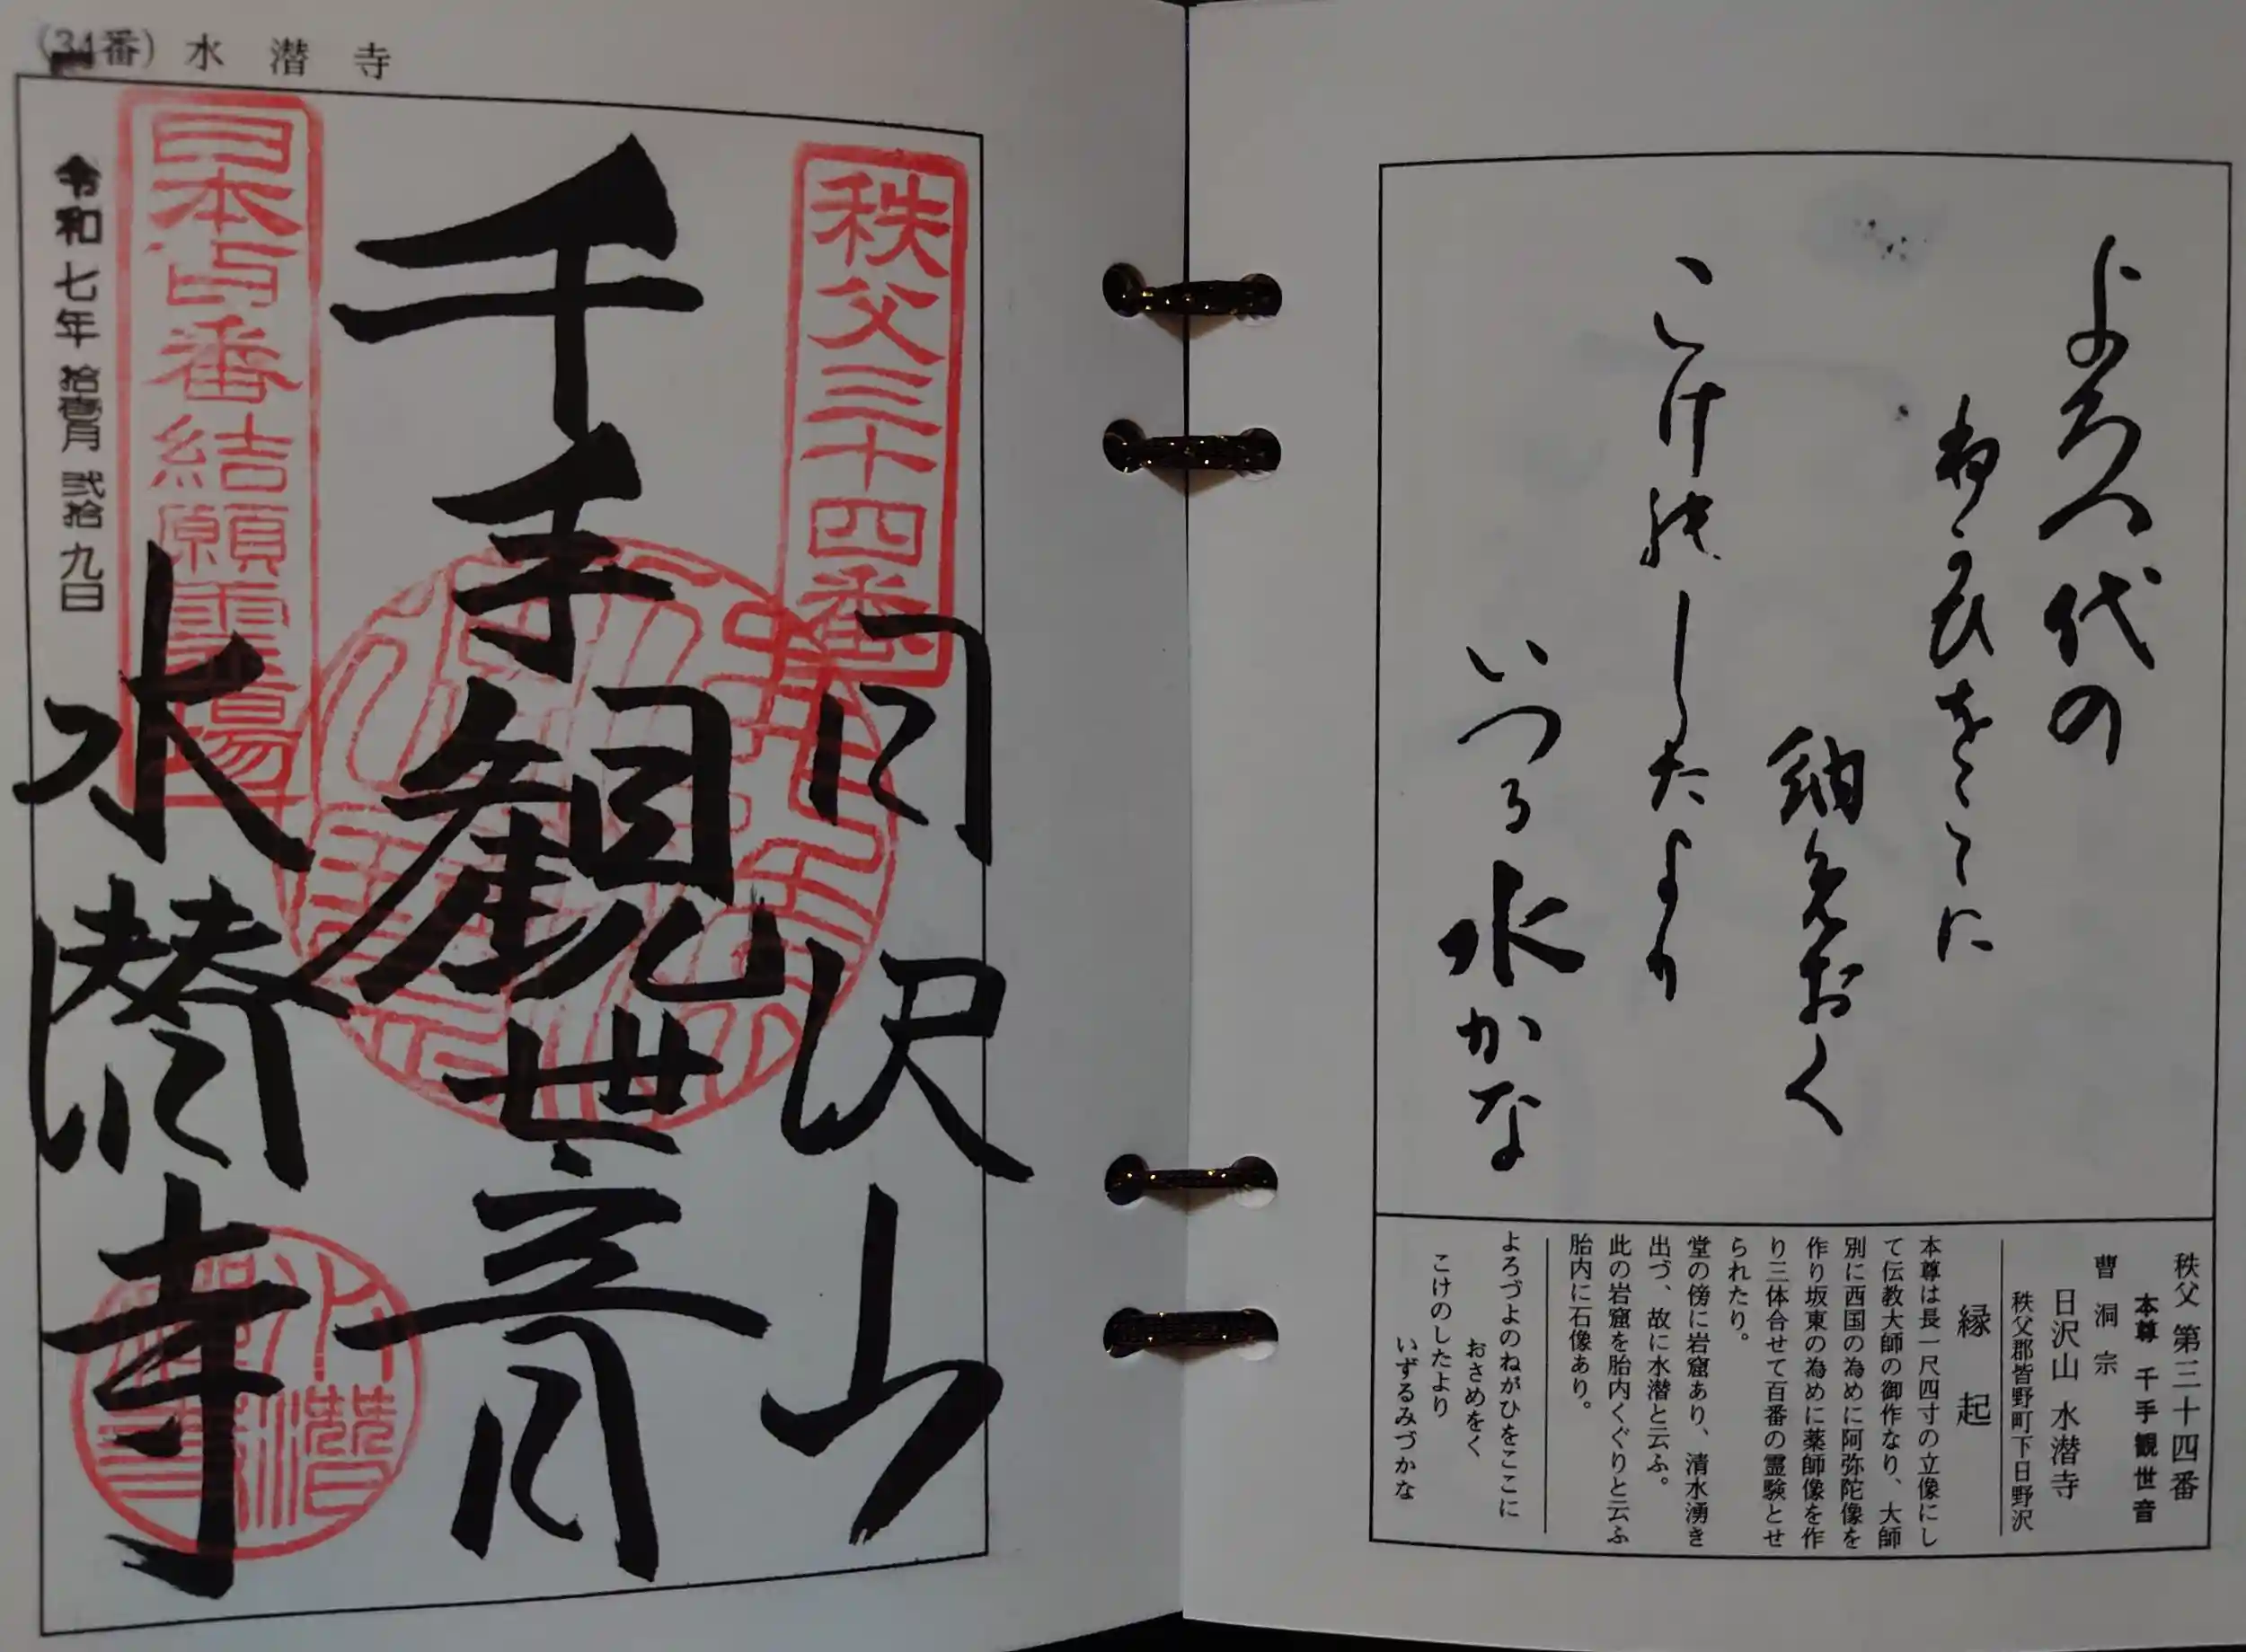 (34番) 水潜寺
秩父三十四番
日沢山
千手観世音
日本百番結願霊場
水潜寺
令和七年拾壹月弐拾九日
水潜寺
よろつ代の
ねかひをこゝに
納めおく
こけのしたより
いつる水かな
秩父 第三十四番
本尊 千手観世音
曹洞宗
日沢山 水潜寺
秩父郡皆野町下日野沢
縁起
本尊は長一尺四寸の立像にし
て伝教大師の御作なり、大師
別に西国の為めに阿弥陀像を
作り坂東の為めに薬師像を作
り三体合せて百番の霊験とせ
られたり。
堂の傍に岩窟あり、清水湧き
出づ、故に水潜と云ふ。
此の岩窟を胎内くぐりと云ふ
胎内に石像あり。
よろづよのねがひをここに
おさめをく
こけのしたより
いずるみづかな